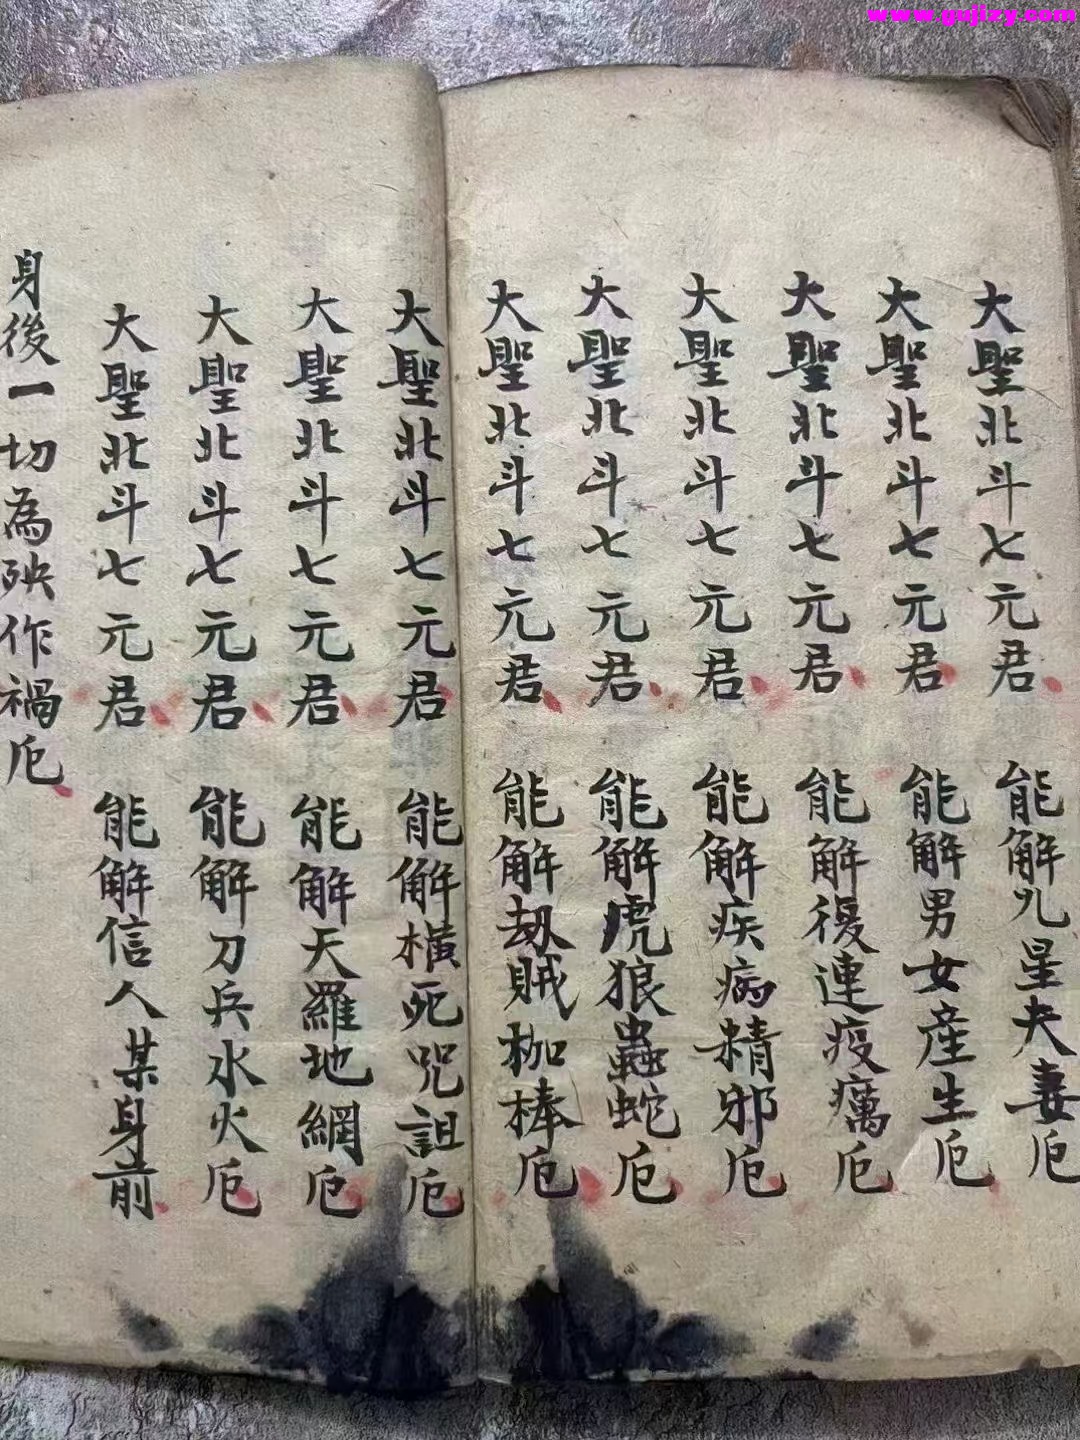 www.gujizy.com
大聖北斗七元君 能解九星夫妻厄
大聖北斗七元君 能解男女產生厄
大聖北斗七元君 能解復連疫癘厄
大聖北斗七元君 能解疾病精邪厄
大聖北斗七元君 能解虎狼蟲蛇厄
大聖北斗七元君 能解劫賊枷棒厄
大聖北斗七元君 能解橫死咒詛厄
大聖北斗七元君 能解天羅地網厄
大聖北斗七元君 能解刀兵水火厄
大聖北斗七元君 能解信人某身前
身後一切為殃作禍厄